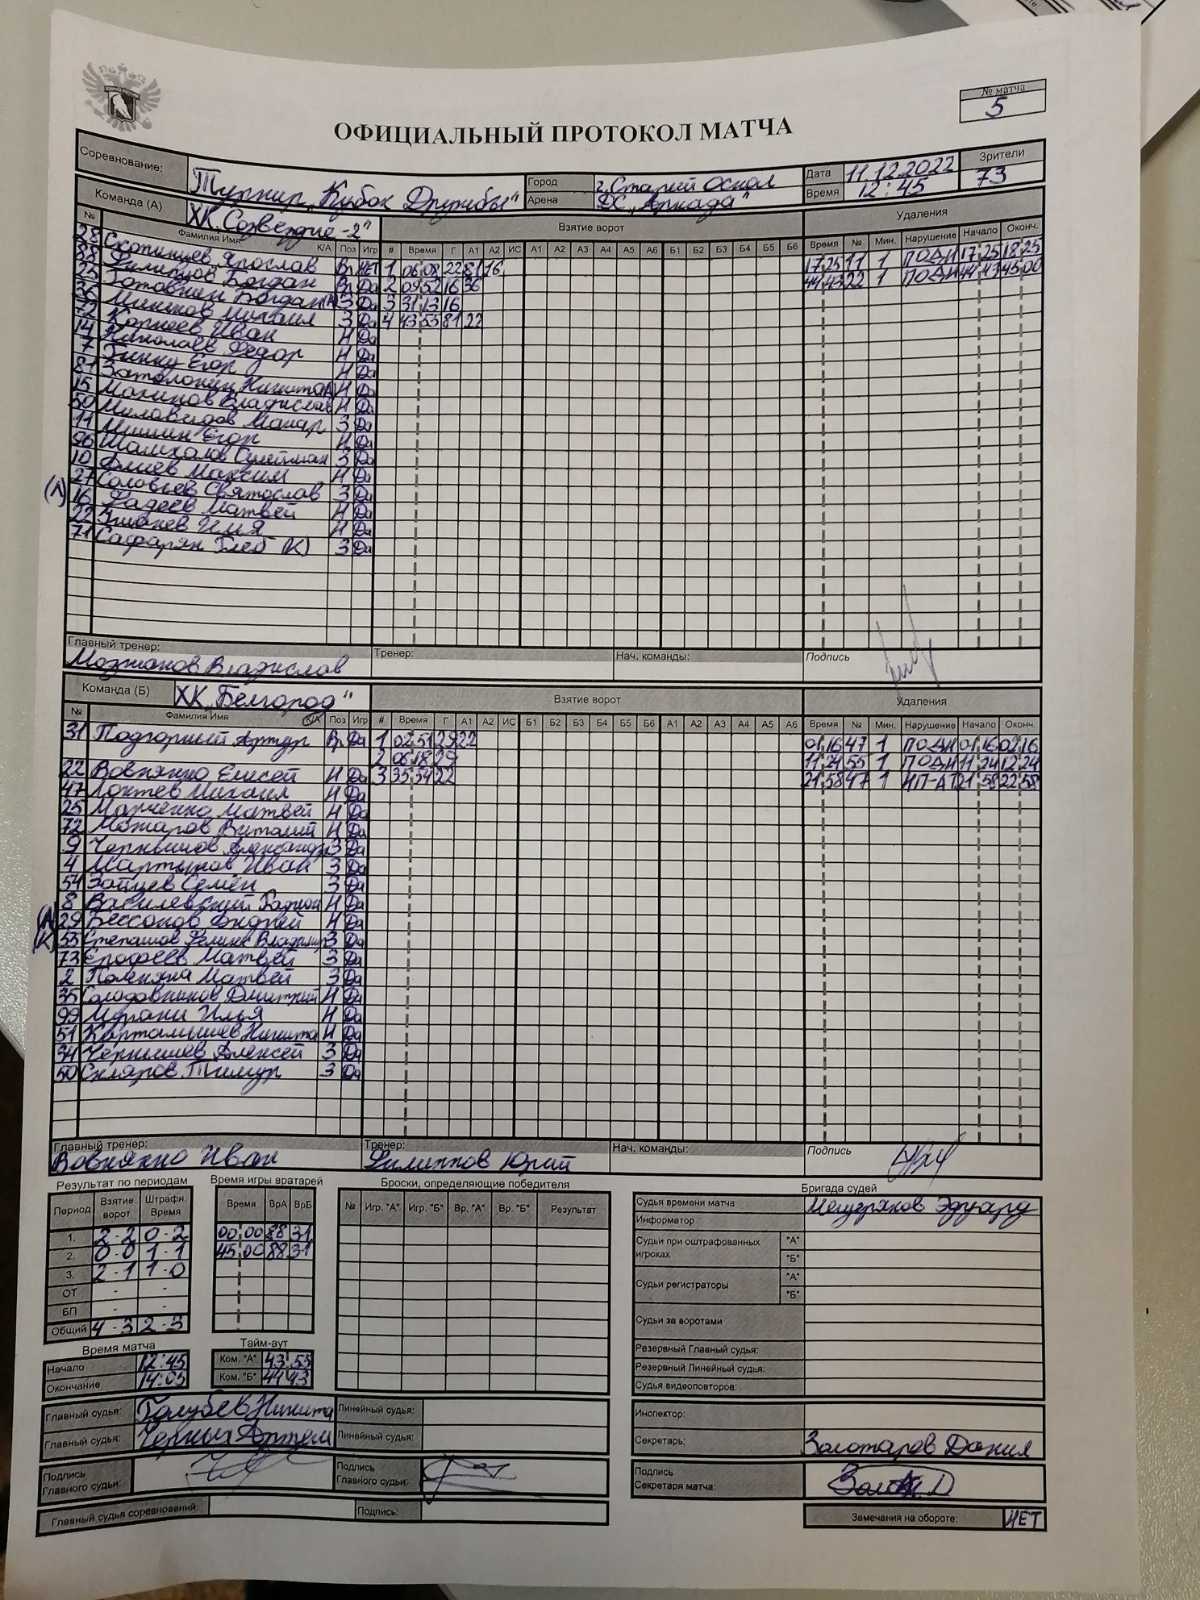 № матча
5
ОФИЦИАЛЬНЫЙ ПРОТОКОЛ МАТЧА
Соревнование: Турнир „Кубок Дружбы" Город г. Старый Оскол Дата 11.12.2022 Зрители
Арена ДС „Аркада" Время 12:45 73
Команда (А) ХК „Созвездие-2" Взятие ворот Удаления
№ Фамилия Имя К/А Поз Игр # Время Г А1 А2 ИС А1 А2 А3 А4 А5 А6 Б1 Б2 Б3 Б4 Б5 Б6 Время № Мин. Нарушение Начало Оконч.
28 Ярослав Вр НЕТ 1 06 08 22 81 16 17 25 11 1 ПОДН 17 25 18 25
88 Филиппов Богдан Вр Да 2 09 52 16 36 44 43 22 1 ПОДН 44 43 45 00
25 Богдан З Да 3 31 13 16
36 Михаил З Да 4 43 53 81 22
72 Корнеев Иван Н Да
14 Николаев Федор Н Да
7 Егор Н Да
81 Никита Н Да
15 Владислав Н Да
50 Миловидов Макар З Да
11 Мишин Егор Н Да
96 Шамхалов Сулейман З Да
10 Алиев Максим Н Да
(А) 27 Соловьев Святослав З Да
16 Фадеев Матвей Н Да
22 Илья Н Да
71 Сафарян Глеб (К) З Да
Главный тренер: Тренер: Нач. команды: Подпись
Мозжаков Владислав
Команда (Б) ХК „Белгород" Взятие ворот Удаления
№ Фамилия Имя К/А Поз Игр # Время Г А1 А2 ИС Б1 Б2 Б3 Б4 Б5 Б6 А1 А2 А3 А4 А5 А6 Время № Мин. Нарушение Начало Оконч.
31 Подгорный Артур Вр Да 1 02 51 29 22 01 16 47 1 ПОДН 01 16 02 16
2 06 18 29 11 24 55 1 ПОДН 11 24 12 24
22 Вовнянко Елисей Н Да 3 35 54 22 21 58 47 1 21 58 22 58
47 Локтев Михаил Н Да
25 Марченко Матвей Н Да
72 Можаров Виталий Н Да
9 Чернышов Александр З Да
4 Мартынов Иван З Да
54 Зайцев Семён З Да
8 Василевский Родион Н Да
(А) 29 Бессонов Андрей Н Да
(К) 53 Степашов З Да
73 Ерофеев Матвей З Да
2 Матвей З Да
35 Солодовников Дмитрий Н Да
99 Илья Н Да
51 Картамышев Никита Н Да
34 Чернышев Алексей З Да
50 Скляров Тимур З Да
Главный тренер: Тренер: Нач. команды: Подпись
Вовнянко Иван Филиппов Юрий
Результат по периодам Время игры вратарей Броски, определяющие победителя Бригада судей
Период Взятие ворот Штрафн. Время Время ВрА ВрБ № Игр. "А" Игр. "Б" Вр. "А" Вр. "Б" Результат
1. 2-2 0-2 00 00 88 31
2. 0-0 1-1 45 00 88 31
3. 2-1 1-0
ОТ - -
БП - -
Общий 4-3 2-3
Судья времени матча Мещеряков Эдуард
Информатор
Судьи при оштрафованных игроках "А" "Б"
Судьи регистраторы "А" "Б"
Судьи за воротами
Резервный Главный судья:
Резервный Линейный судья:
Судья видеоповторов:
Время матча Тайм-аут
Начало 12:45 Ком. "А" 43 53
Окончание 14:05 Ком. "Б" 44 43
Главный судья: Голубев Никита Линейный судья: Инспектор:
Главный судья: Черных Артем Линейный судья: Секретарь: Золотарев Данил
Подпись Главного судьи: Подпись Главного судьи: Подпись Секретаря матча:
Главный судья соревнований: Подпись: Замечания на обороте: НЕТ